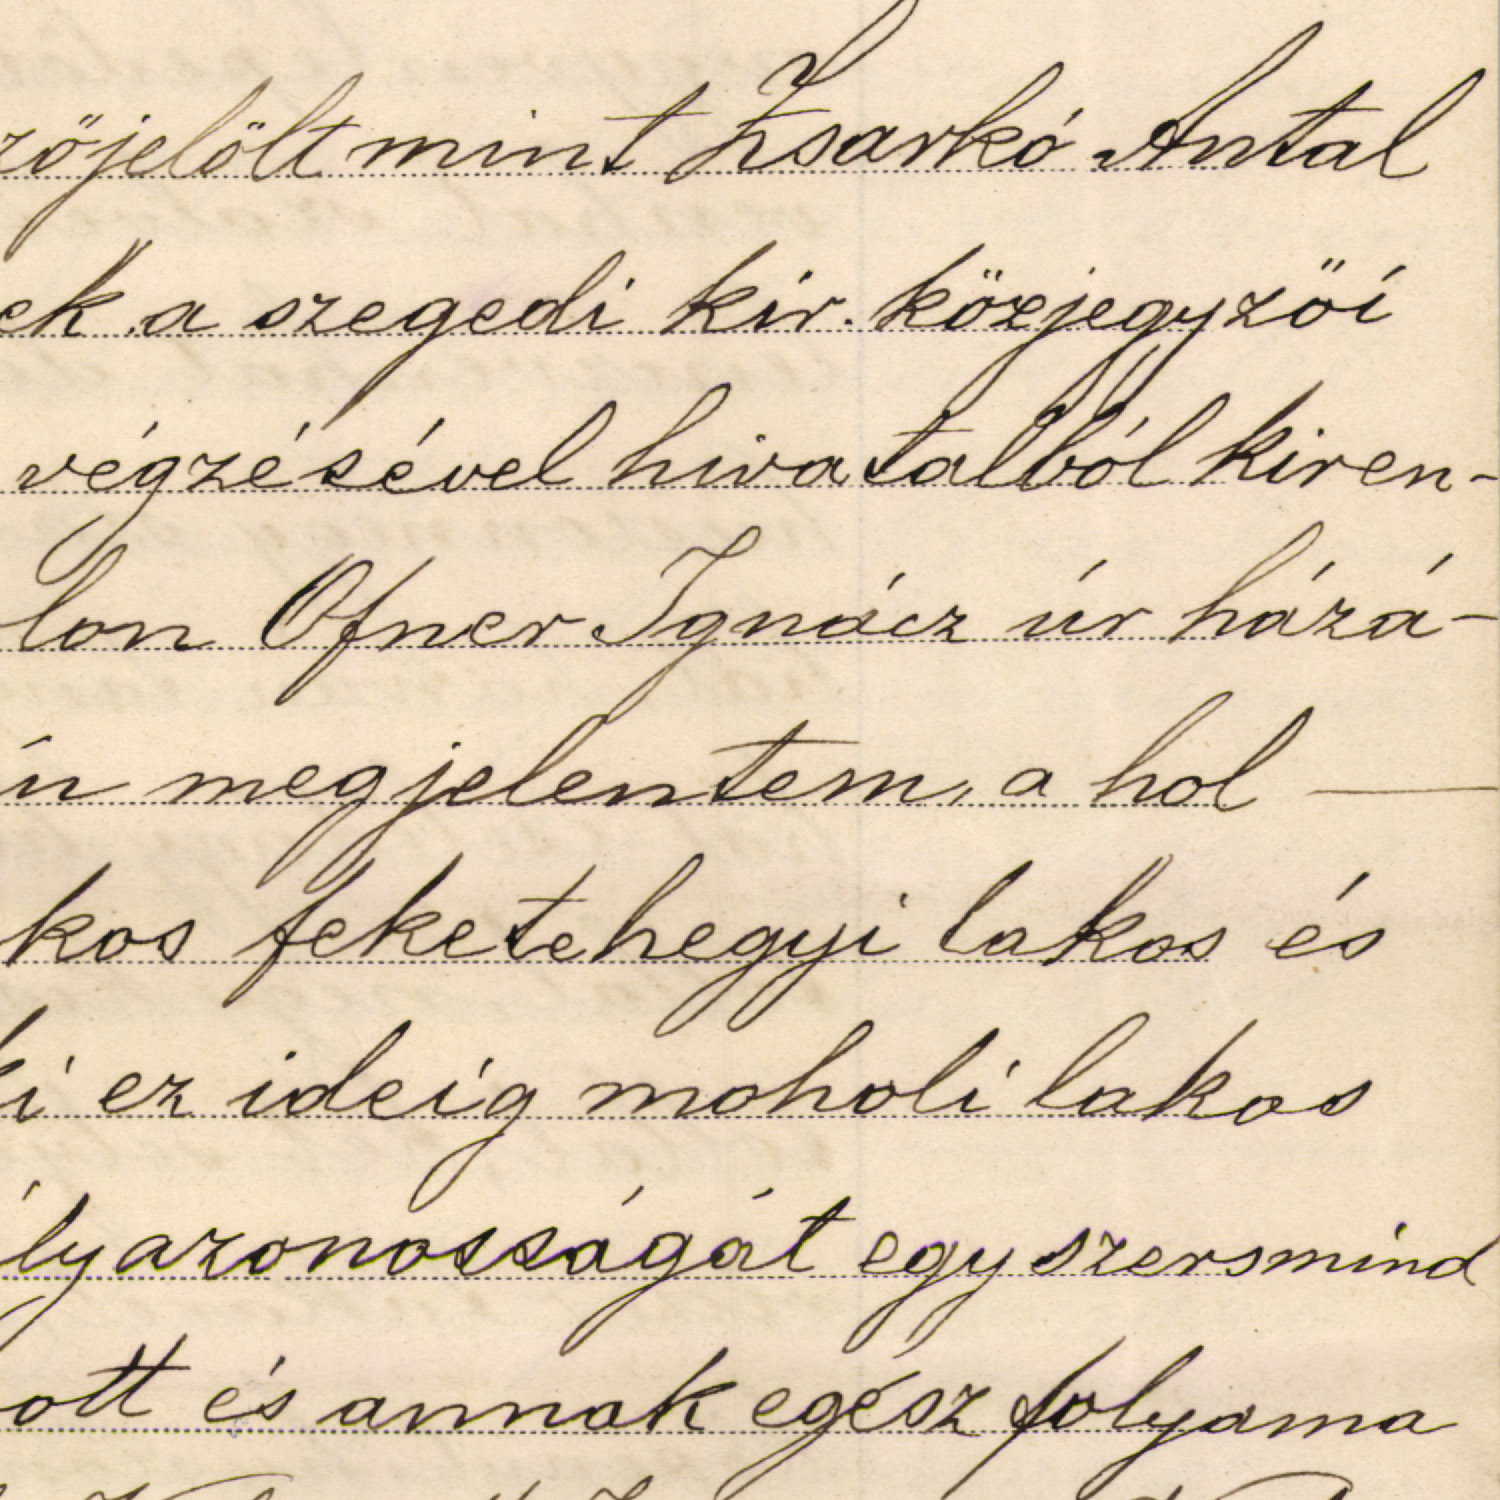 zőjelölt mint Zsarkó Antal
ek a szegedi kir. közjegyzői
végzésével hivatalból kiren-
lon Ofner Ignácz úr házá-
megjelentem, a hol —
kos feketehegyi lakos és
ki ez ideig moholi lakos
ly azonosságát egyszersmind
ott és annak egész folyama